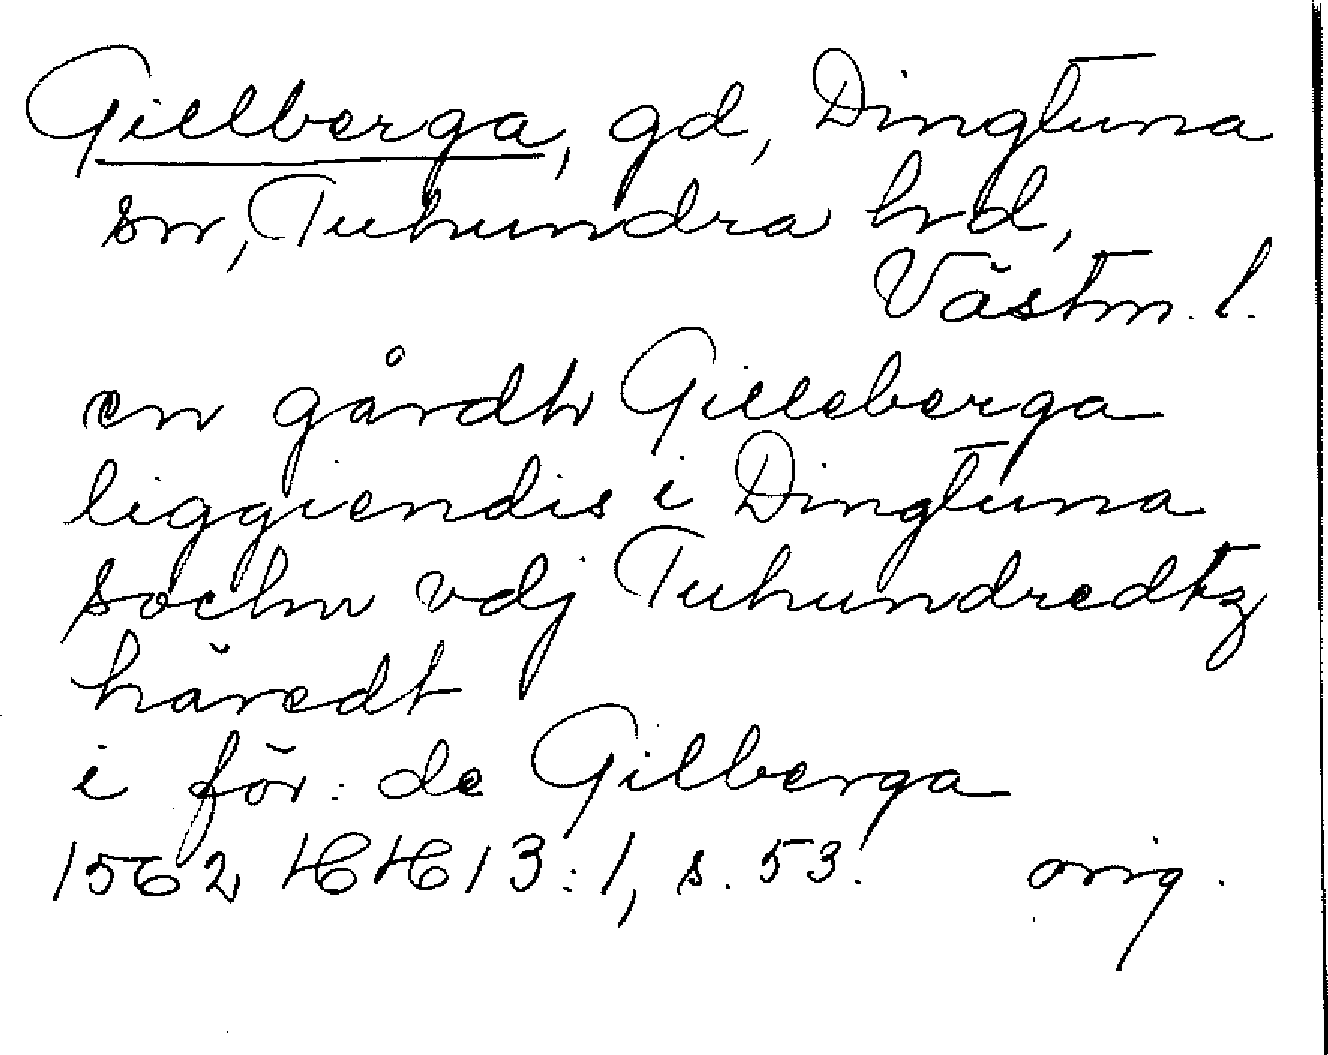 Gillberga, gd, Dingtuna
sn, Tuhundra hd,
Västm. l.
en gårdh Gilleberga
liggiendis i Dingtuna
sochn vdj Tuhundredtz
häredt
iför: de Gilberga
1562 HH 13:1, s. 53. orig.